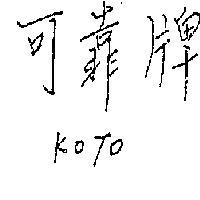 可靠牌
KOTO